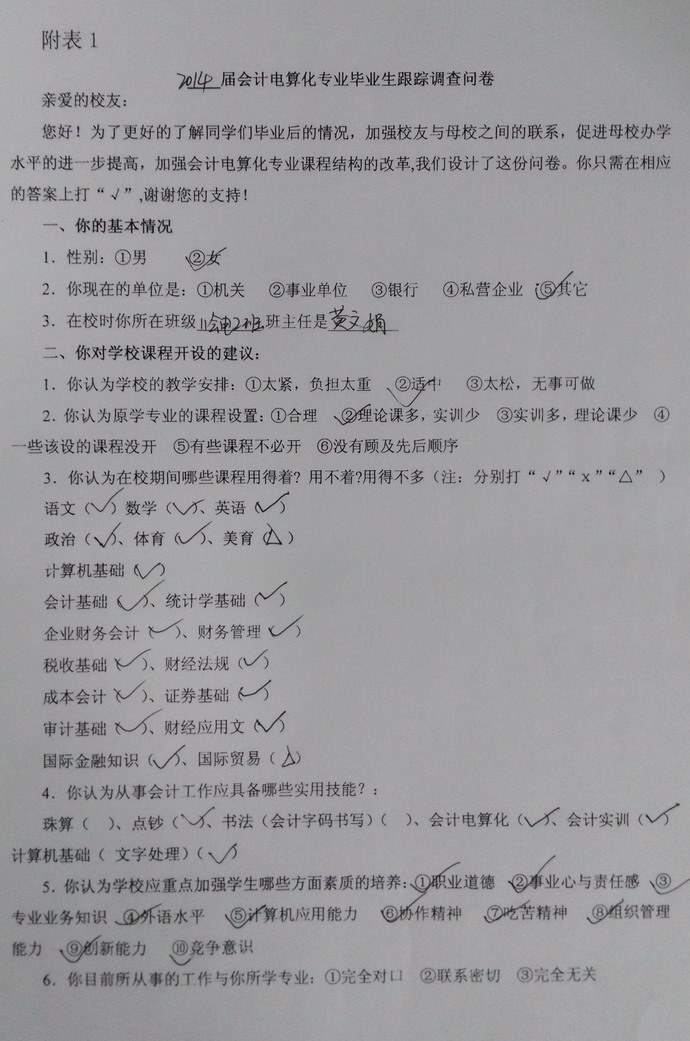 附表 1
2014 届会计电算化专业毕业生跟踪调查问卷
亲爱的校友：
您好！为了更好的了解同学们毕业后的情况，加强校友与母校之间的联系，促进母校办学
水平的进一步提高，加强会计电算化专业课程结构的改革,我们设计了这份问卷。你只需在相应
的答案上打“√”,谢谢您的支持！
一、你的基本情况
1．性别：①男 ②女
2．你现在的单位是：①机关 ②事业单位 ③银行 ④私营企业 ⑤其它
3．在校时你所在班级 11会电2班 班主任是 黄文娟
二、你对学校课程开设的建议：
1．你认为学校的教学安排：①太紧，负担太重 ②适中 ③太松，无事可做
2．你认为原学专业的课程设置：①合理 ②理论课多，实训少 ③实训多，理论课少 ④
一些该设的课程没开 ⑤有些课程不必开 ⑥没有顾及先后顺序
3．你认为在校期间哪些课程用得着？用不着?用得不多（注：分别打“√”“x”“△” ）
语文（√）数学（√）、英语（√）
政治（√）、体育（√）、美育（△）
计算机基础（√）
会计基础（√）、统计学基础（√）
企业财务会计（√）、财务管理（√）
税收基础（√）、财经法规（√）
成本会计（√）、证券基础（√）
审计基础（√）、财经应用文（√）
国际金融知识（√）、国际贸易（△）
4．你认为从事会计工作应具备哪些实用技能？：
珠算（ ）、点钞（√）、书法（会计字码书写）（ ）、会计电算化（√）、会计实训（√）
计算机基础（ 文字处理）（√）
5．你认为学校应重点加强学生哪些方面素质的培养：①职业道德 ②事业心与责任感 ③
专业业务知识 ④外语水平 ⑤计算机应用能力 ⑥协作精神 ⑦吃苦精神 ⑧组织管理
能力 ⑨创新能力 ⑩竞争意识
6．你目前所从事的工作与你所学专业：①完全对口 ②联系密切 ③完全无关